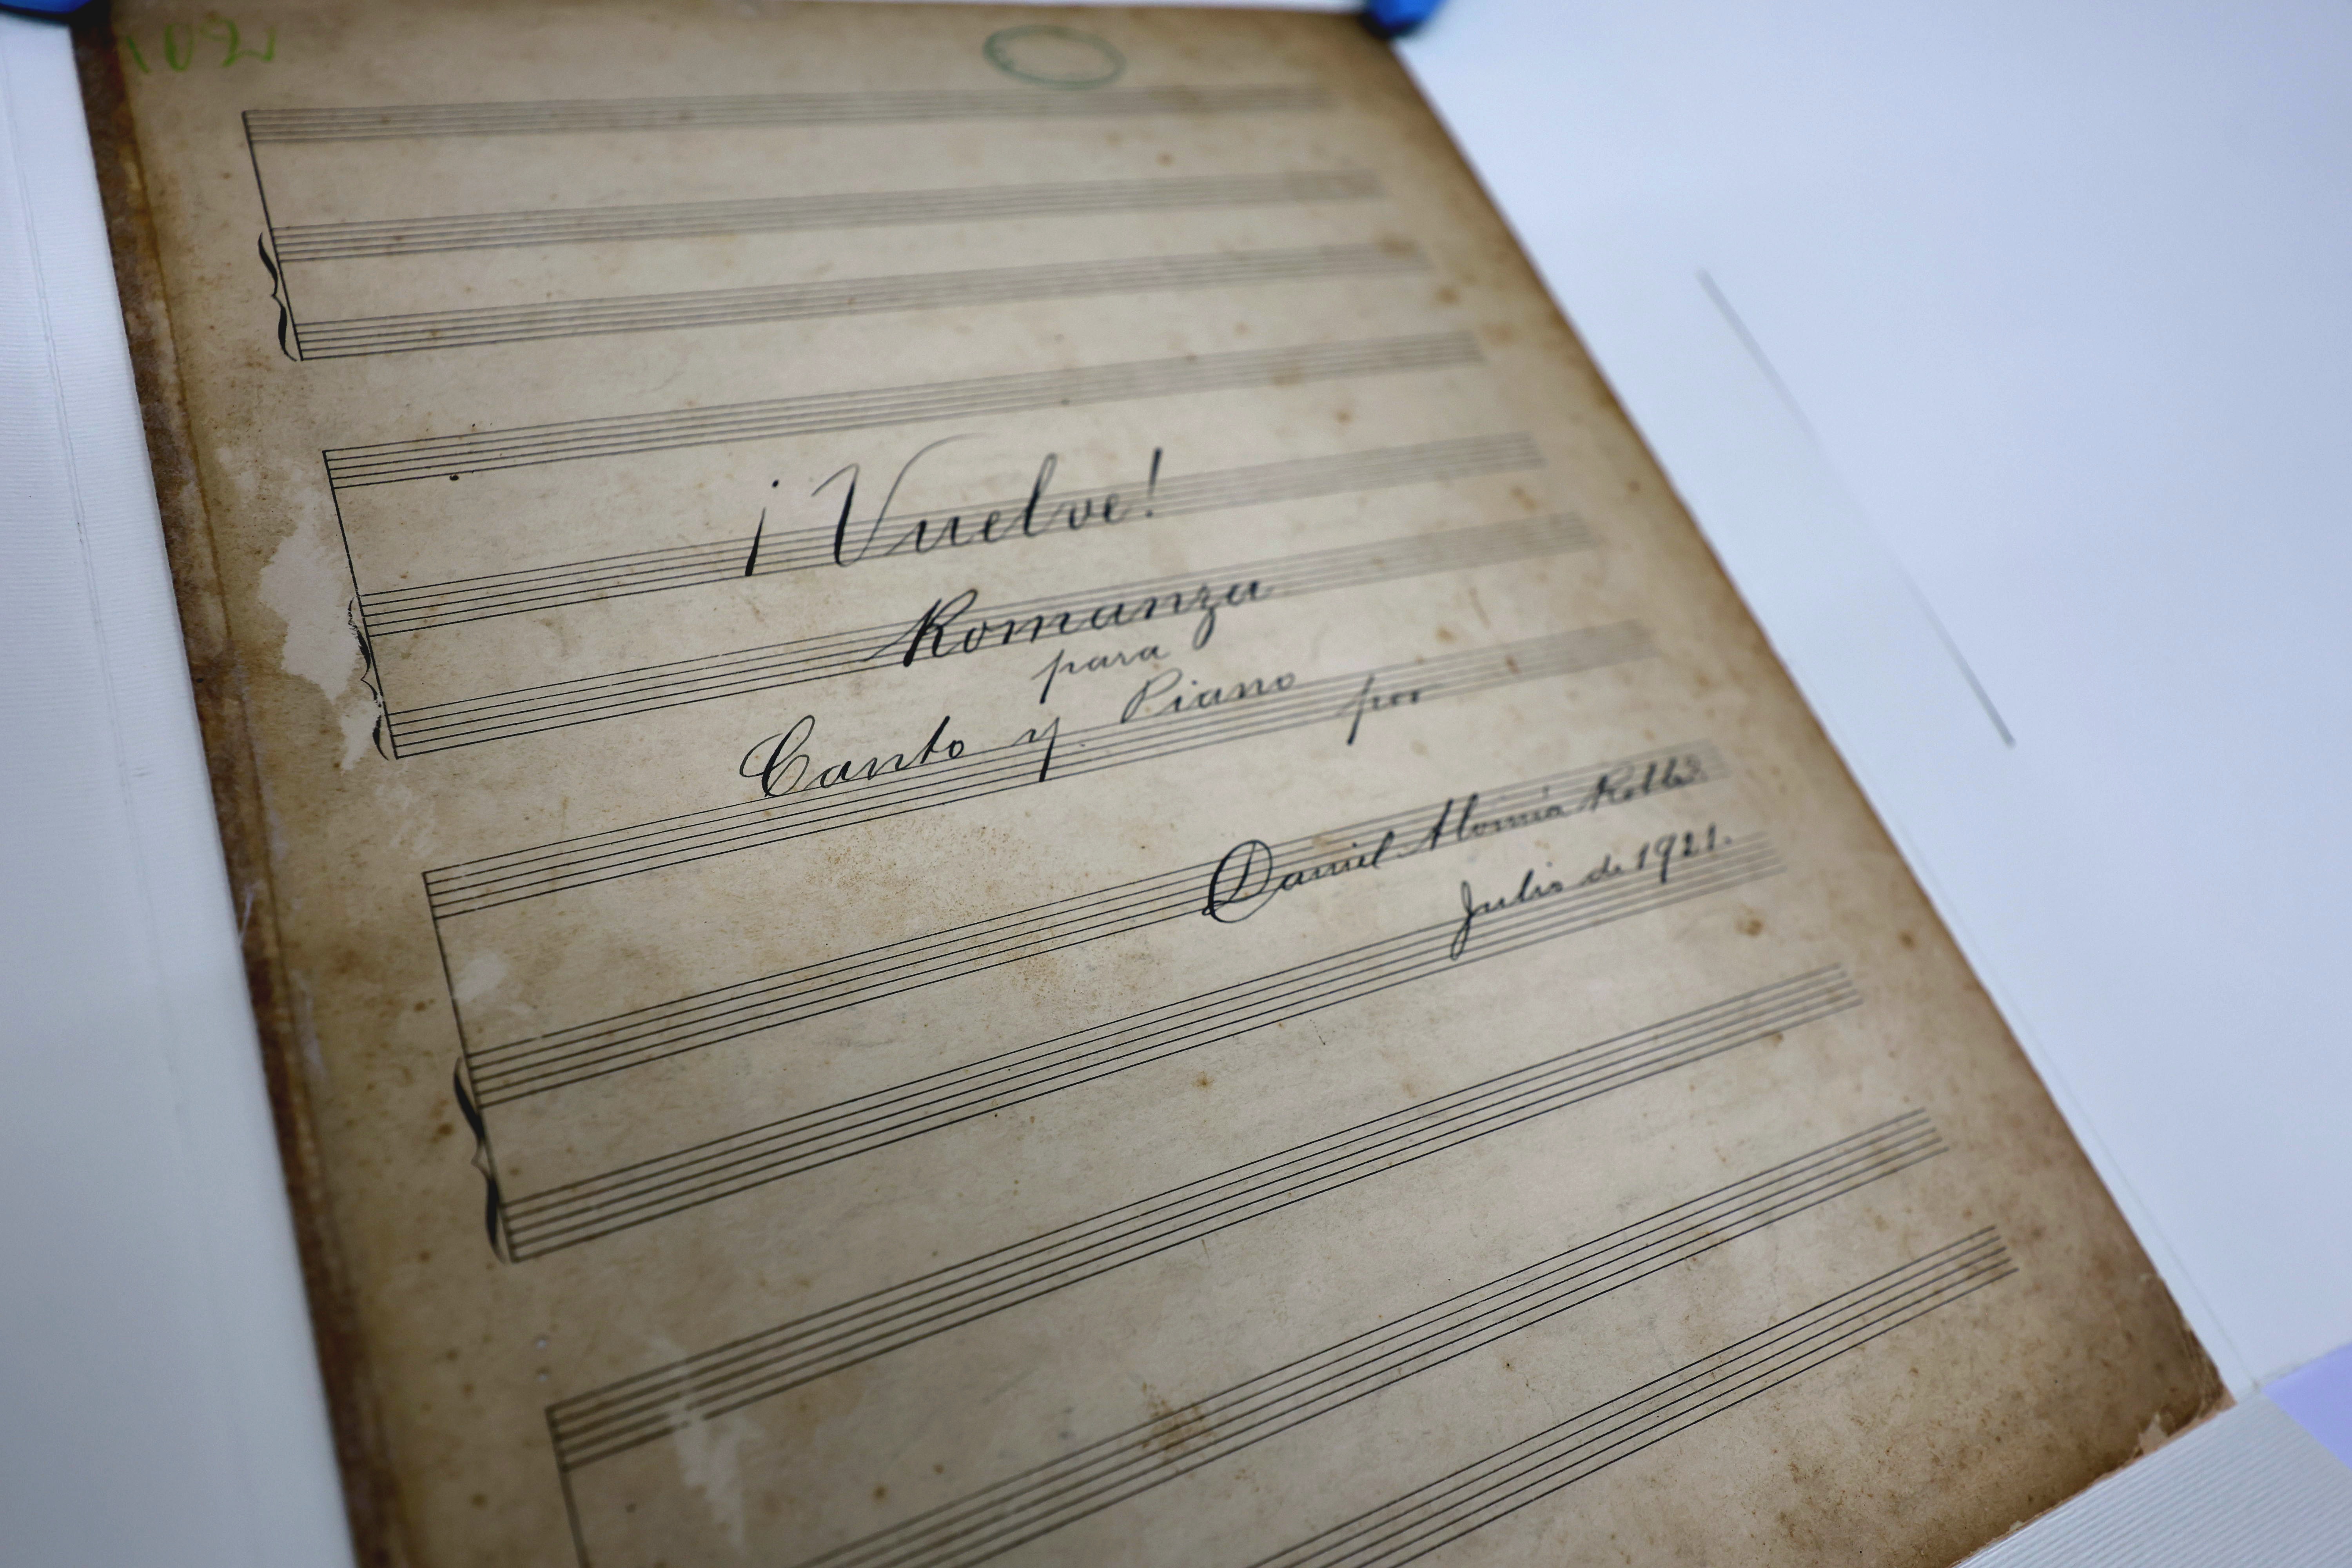 102
¡Vuelve!
Romanza
para
Canto y Piano por
Daniel Alomía Robles.
Julio de 1921.